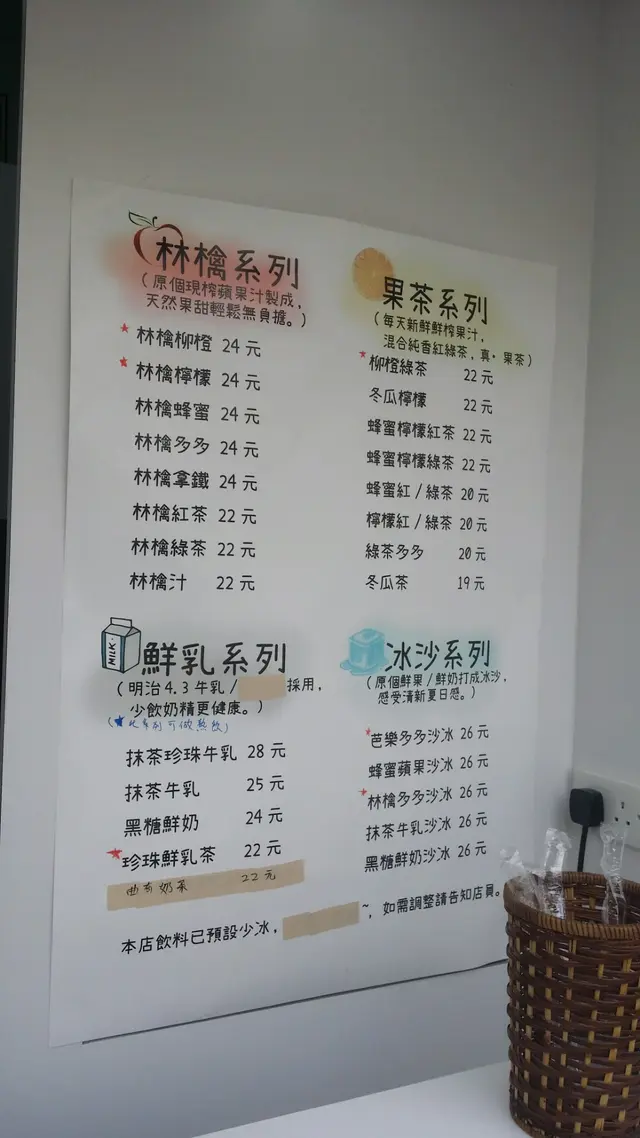 林檎系列
(原個現榨蘋果汁製成,
天然果甜輕鬆無負擔。)
林檎柳橙 24 元
林檎檸檬 24 元
林檎蜂蜜 24 元
林檎多多 24 元
林檎拿鐵 24 元
林檎紅茶 22 元
林檎綠茶 22 元
林檎汁 22 元
果茶系列
(每天新鮮鮮榨果汁,
混合純香紅綠茶,真·果茶)
柳橙綠茶 22 元
冬瓜檸檬 22 元
蜂蜜檸檬紅茶 22 元
蜂蜜檸檬綠茶 22 元
蜂蜜紅/綠茶 20 元
檸檬紅/綠茶 20 元
綠茶多多 20 元
冬瓜茶 19 元
MILK
鮮乳系列
(明治4.3牛乳/ 採用,
少飲奶精更健康。)
(★此系列可做熱飲)
抹茶珍珠牛乳 28 元
抹茶牛乳 25 元
黑糖鮮奶 24 元
珍珠鮮乳茶 22 元
奶茶 22 元
冰沙系列
(原個鮮果/鮮奶打成冰沙,
感受清新夏日感。)
芭樂多多沙冰 26 元
蜂蜜蘋果沙冰 26 元
林檎多多沙冰 26 元
抹茶牛乳沙冰 26 元
黑糖鮮奶沙冰 26 元
本店飲料已預設少冰, ~,如需調整請告知店員。